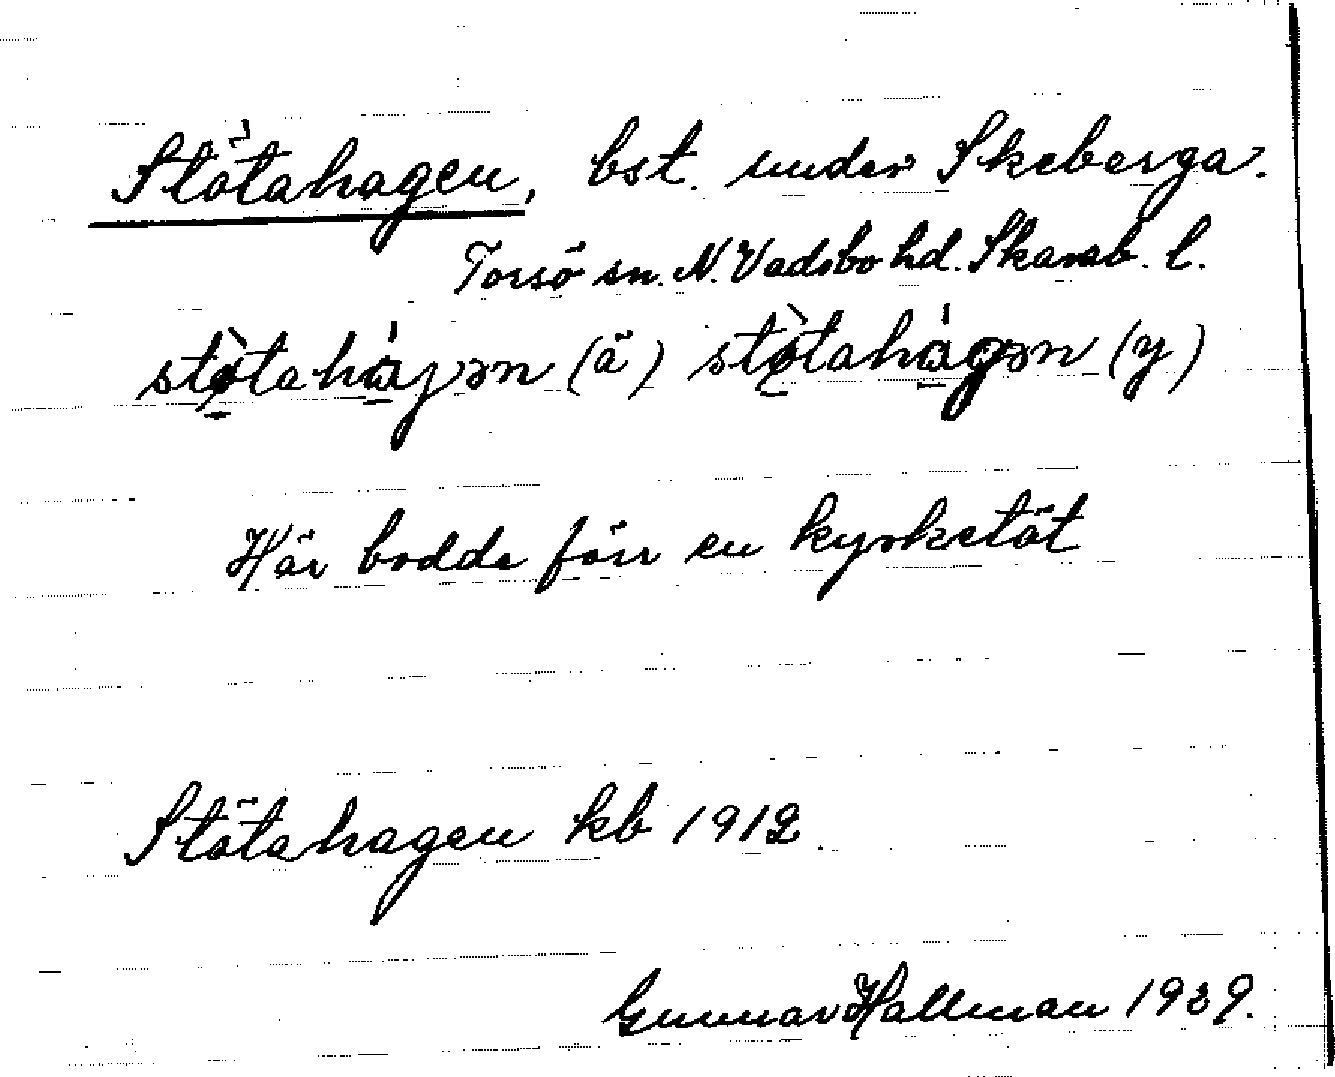 Stötahagen, bst. under Skeberga.
Torsö sn. N. Vadsbo hd. Skarab. l.
støtahagən (ä) støtahagən (y)
Här bodde förr en kyrkstöt
Stötahagen kb 1912.
Gunnar Hallman 1939.